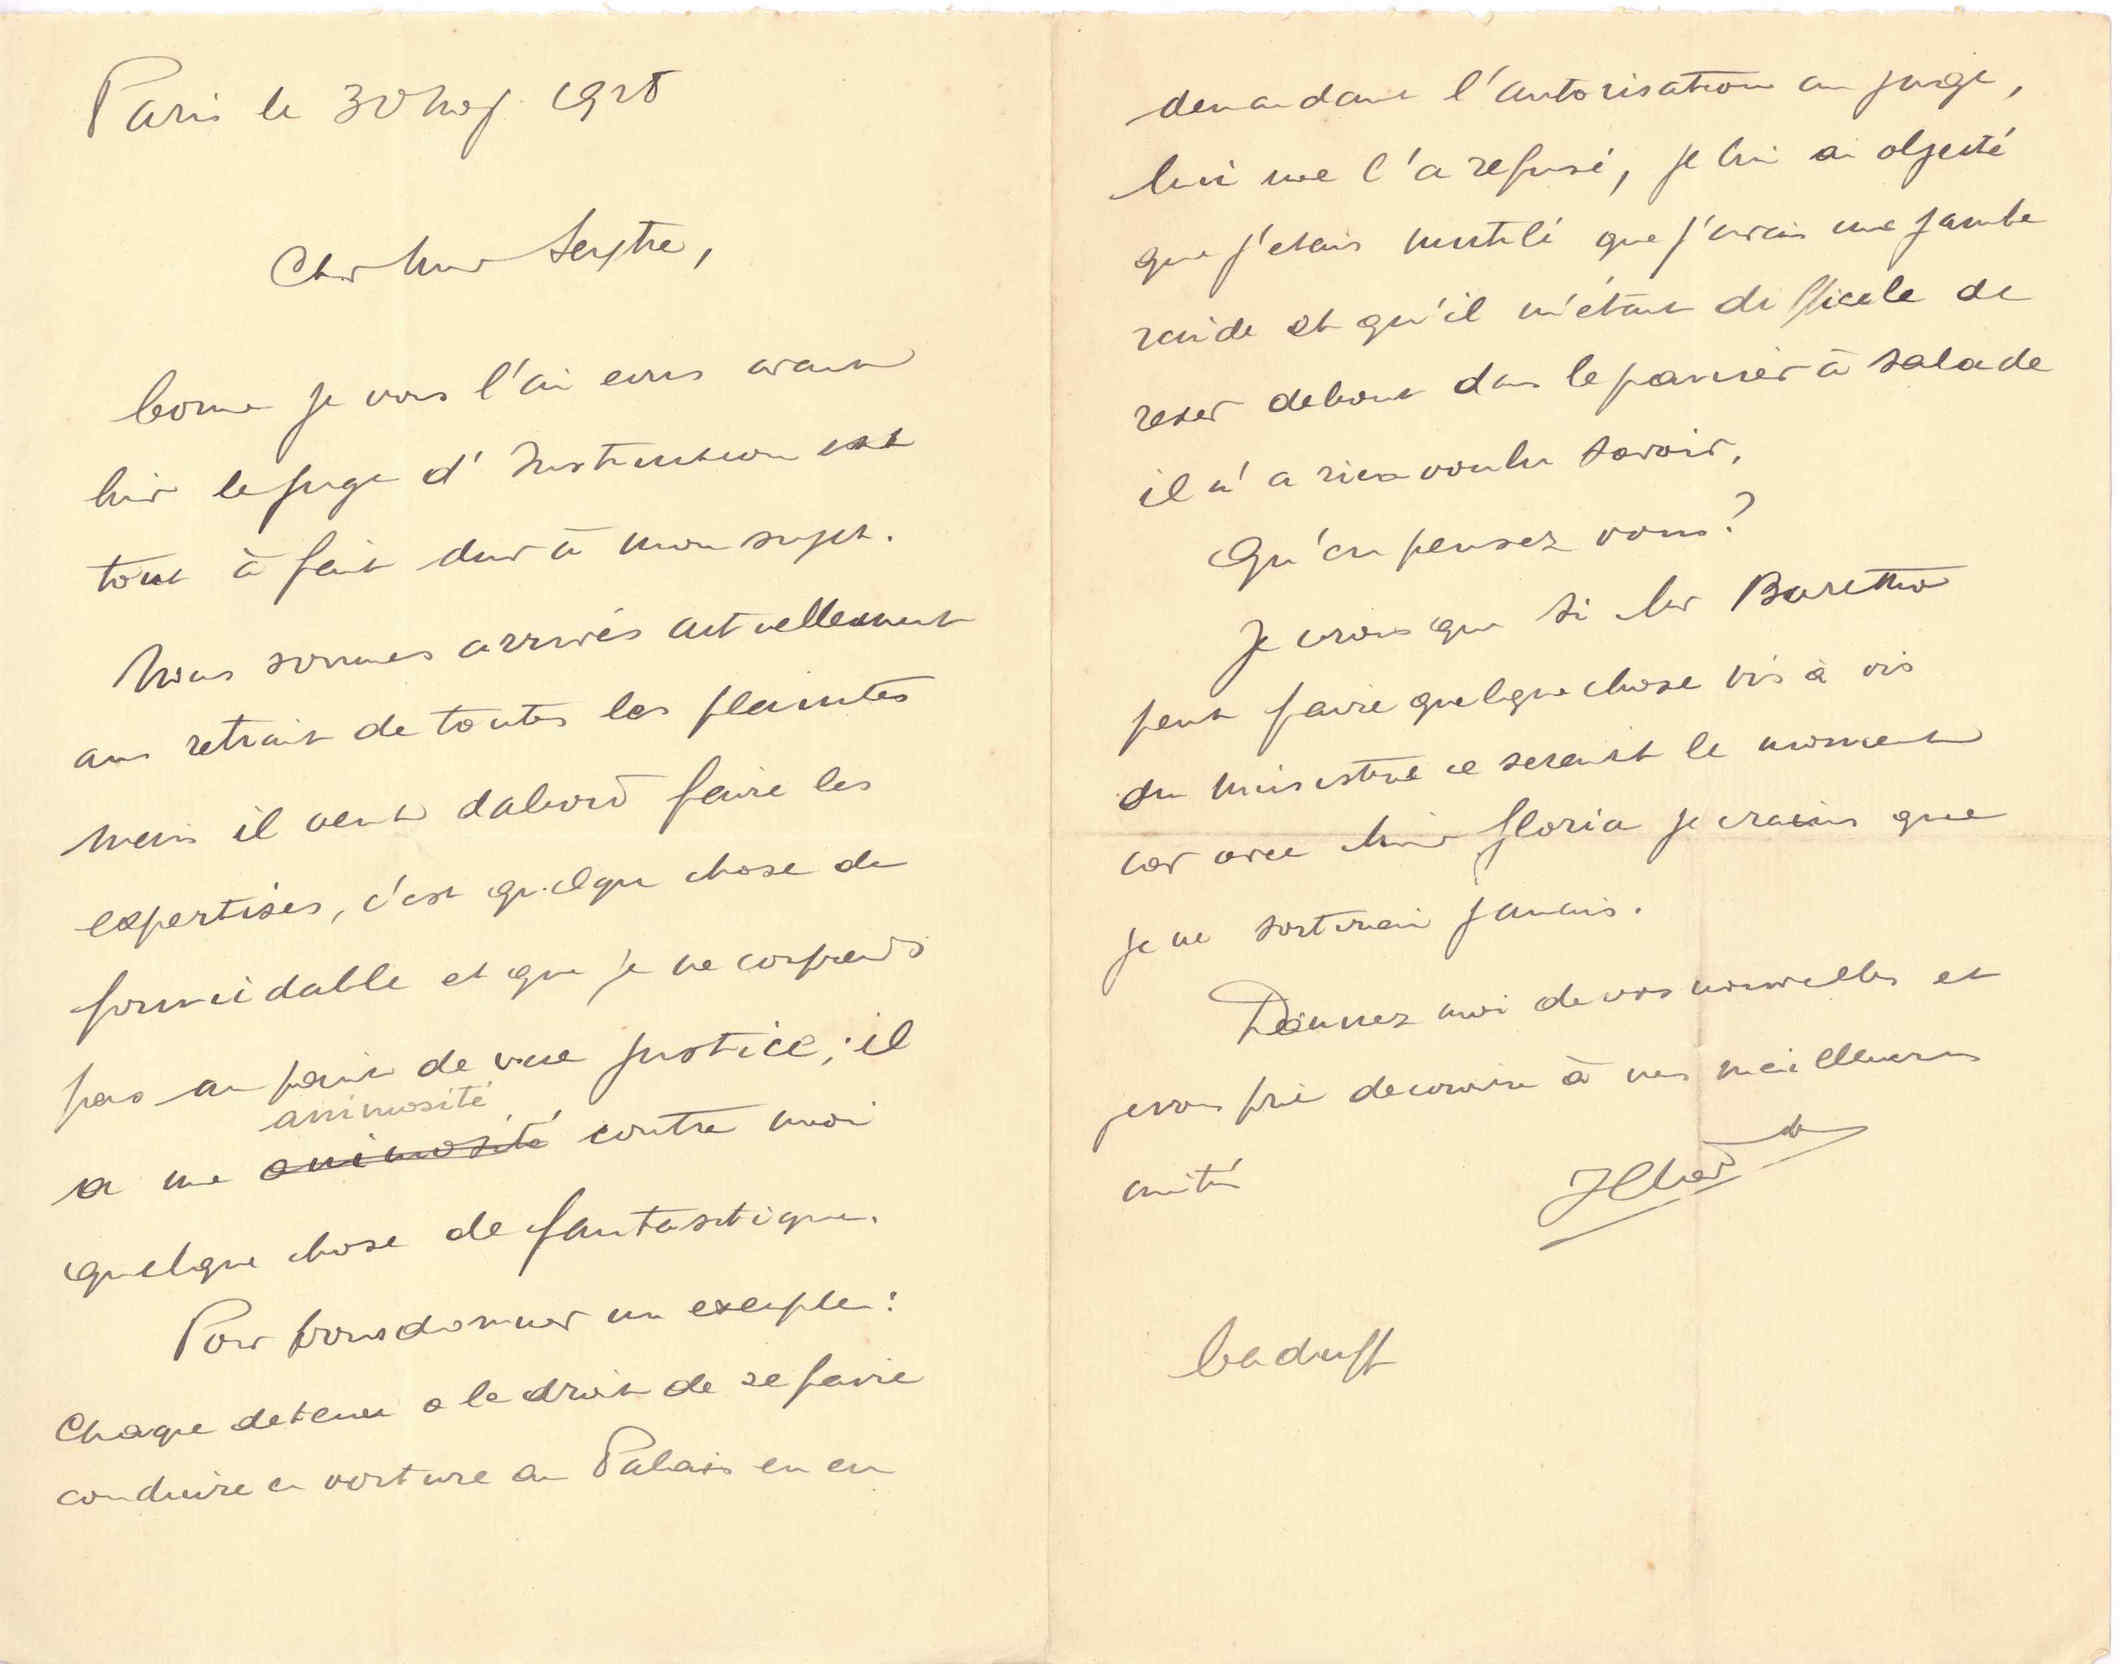 Paris le 30 nov. 1928
Cher Mr Seystre,
Comme je vous l'ai ecris avant
hier le juge d'Instruction est
tout à fait dur à mon sujet.
Nous sommes arrivés actuellement
au retrait de toutes les plaintes
mais il veut dabord faire les
expertises, c'est quelque chose de
formidable et que je ne comprends
pas au point de vue justice; il
animosité
a une animosité contre moi
quelque chose de fantastique.
Pour vous donner un exemple:
Chaque detenu a le droit de se faire
conduire en voiture au Palais en en
demandant l'autorisation au juge,
lui me l'a refusé, je lui ai objecté
que j'etais mutilé que j'avais une jambe
raide et qu'il m'étant difficele de
rester debout dans le panier à salade
il n'a rien voulu savoir,
Qu'en pensez vous?
Je crois que si Mr Baretto
peut faire quelque chose vis à vis
du ministere ce serait le moment
car avec Mr Gloria je crains que
je ne sortirai jamais.
Donnez moi de vos nouvelles et
je vous prie de croire à mes meilleures
amitiés